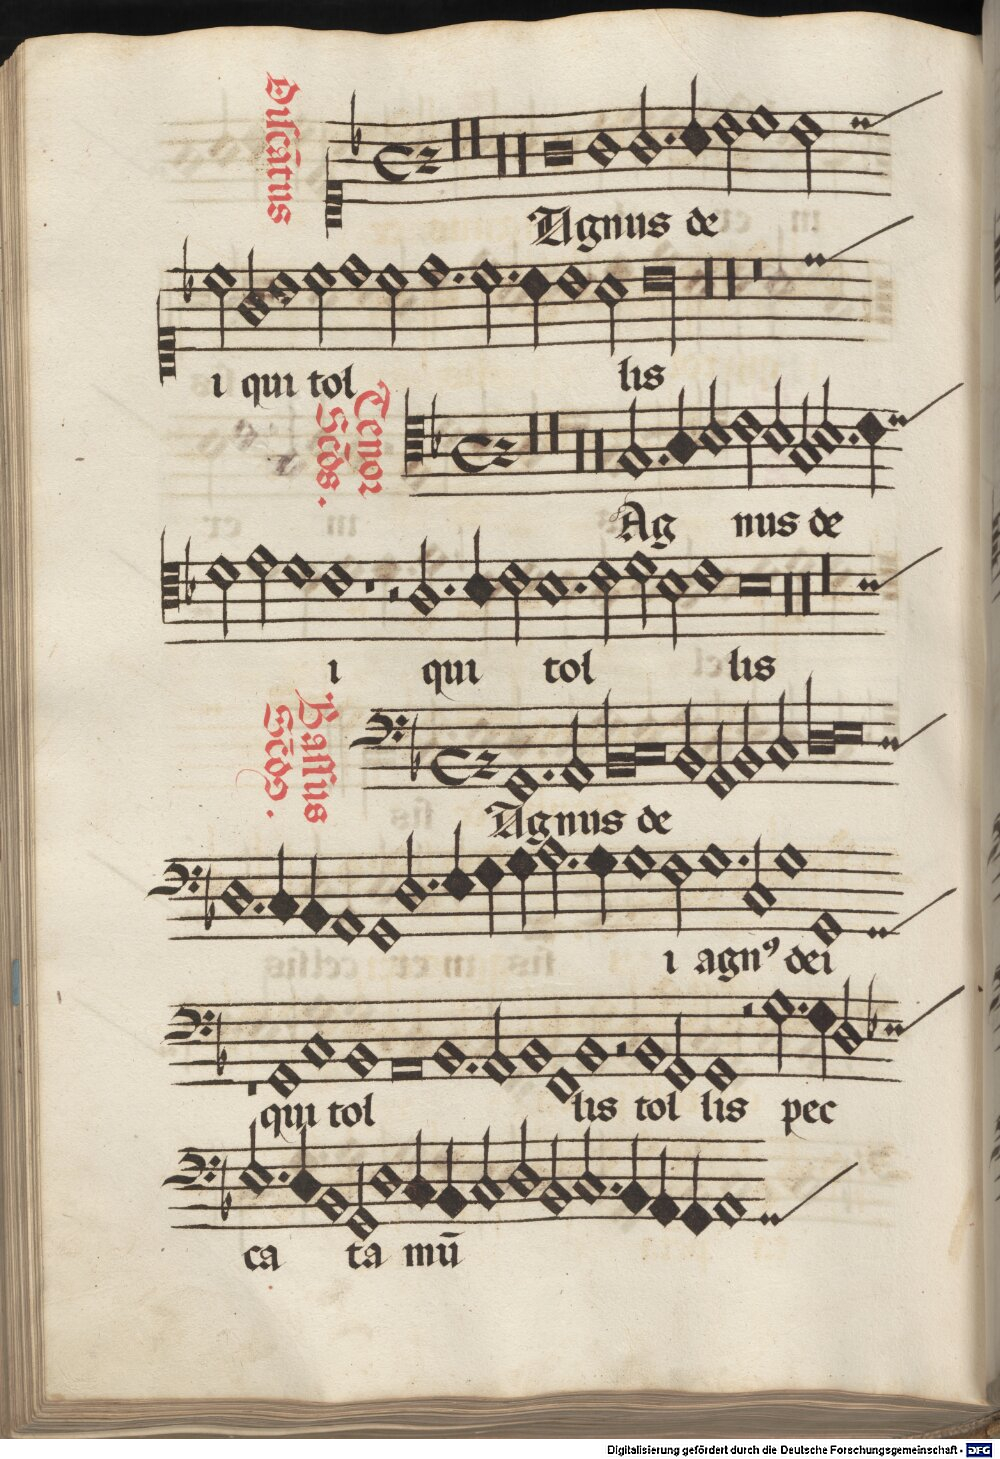 Discātus
Agnus de
i qui tol lis
Tenor
Scd̄s.
Ag nus de
i qui tol lis
Bassus
Scd̄s.
Agnus de
i agnꝰ dei
qui tol lis tol lis pec
ca ta mū
Digitalisierung gefördert durch die Deutsche Forschungsgemeinschaft - DFG